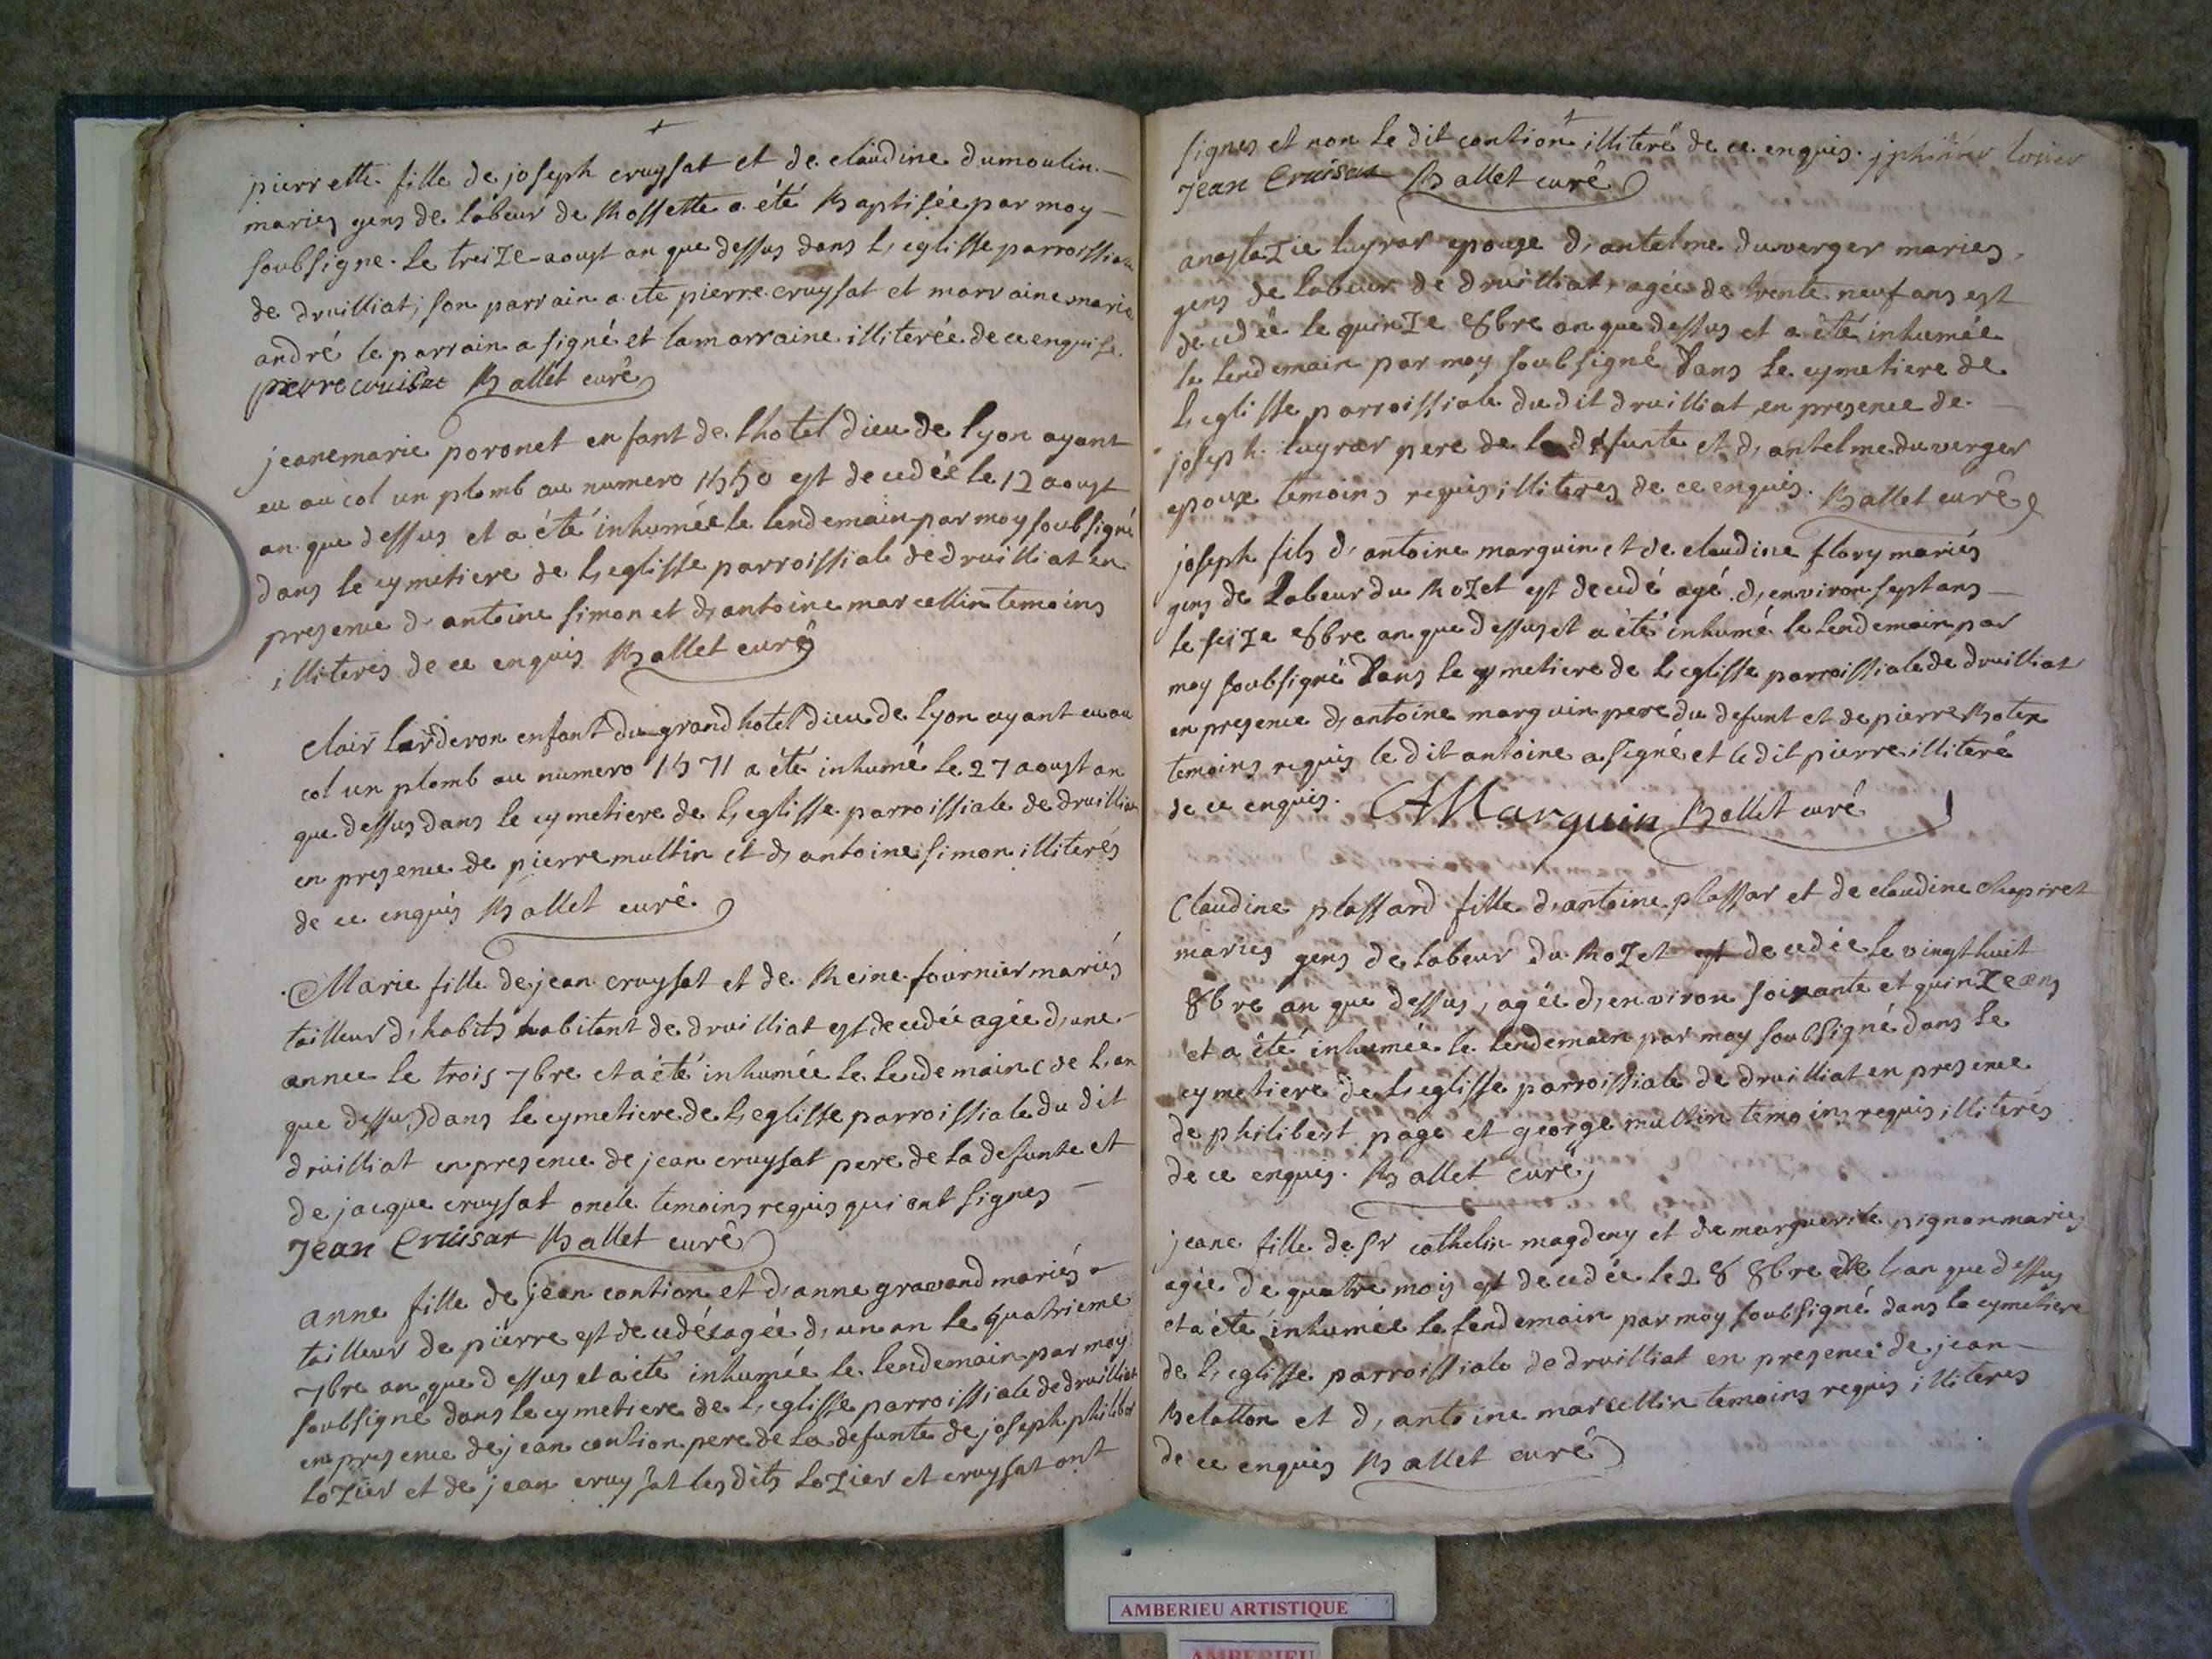 pierrette fille de joseph cruysat et de claudine dumoulin
mariés gens de labeur de Rossette a été Baptisée par moy
soubsigne. le treize aoust an que dessus dans l,eglisse parroissiale
de druilliat, son parrain a ete pierre cruysat et marraine marie
andré le parrain a signé et la marraine illiterée de ce enquise.
pierre cruisat Ballet curé
jeanemarie poronet enfant de lhotel dieu de lyon ayant
eu au col un plomb au numero 1550 est decedée le 12 aoust
an que dessus et a été inhumée le lendemain par moy soubsigné
dans le cymetiere de l,eglisse parroissiale de druilliat en
presence d,antoine simon et d,antoine marcellin temoins
illiteres de ce enquis Ballet curé
clair larderon enfant du grand hotel dieu de lyon ayant eu au
col un plomb au numero 1571 a été inhumé le 27 aoust an
que dessus dans le cymetiere de l,eglisse parroissiale de druilliat
en presence de pierre multin et d,antoine simon illiterés
de ce enquis Ballet curé
Marie fille de jean cruysat et de Reine fournier mariés
tailleur d,habits habitant de druilliat est decedée agée d,une
annee le trois 7bre et a été inhumée le lendemain (de l,an
que dessus) dans le cymetiere de l,eglisse parroissiale du dit
druilliat en presence de jean cruysat pere de la defunte et
de jacque cruysat oncle temoins requis qui ont signes
Jean Cruisat Ballet curé
anne fille de jean contion et d,anne gravand mariés
tailleur de pierre est decedée agée d,un an le quatrieme
7bre an que dessus et a été inhumée le lendemain par moy
soubsigné dans le cymetiere de l,eglisse parroissiale de druilliat
en presence de jean contion pere de la defunte de joseph philibert
lozier et de jean cruysat les dits lozier et cruysat ont
signes et non le dit contion illiteré de ce enquis. lozier
Jean Cruisat Ballet curé
anastazie luyrar epouse d,antelme duverger maries
gens de labeur de druilliat, agée de trente neuf ans est
decedée le quinze 8bre an que dessus et a été inhumée
le lendemain par moy soubsigné dans le cymetiere de
l,eglisse parroissiale du dit druilliat en presence de
joseph luyrar pere de la defunte et d,antelme duverger
epoux temoins requis illiteres de ce enquis. Ballet curé
joseph fils d,antoine marguin et de claudine flory mariés
gens de labeur du Rozet est decedé agé d,environ sept ans
le seize 8bre an que dessus et a été inhumé le lendemain par
moy soubsigné dans le cymetiere de l,eglisse parroissiale de druilliat
en presence d,antoine marguin pere du defunt et de pierre Botex
temoins requis le dit antoine a signé et le dit pierre illiteré
de ce enquis. A Marguin Ballet curé
Claudine plassard fille d,antoine plassar et de claudine chapiret
maries gens de labeur du Rozet est decedée le vingt huit
8bre an que dessus, agée d,environ soixante et quinze ans
et a été inhumée le lendemain par moy soubsigné dans le
cymetiere de l,eglisse parroissiale de druilliat en presence
de philibert page et george multin temoins requis illiterés
de ce enquis. Ballet curé
jeane fille de sr cathelin magdeny et de marguerite pignon maries
agée de quatre mois est decedée le 28 8bre de l,an que dessus
et a été inhumée le lendemain par moy soubsigné dans le cymetiere
de l,eglisse parroissiale de druilliat en presence de jean
Belatton et d,antoine marcellin temoins requis illiteres
de ce enquis Ballet curé
AMBERIEU ARTISTIQUE
AMBERIEU